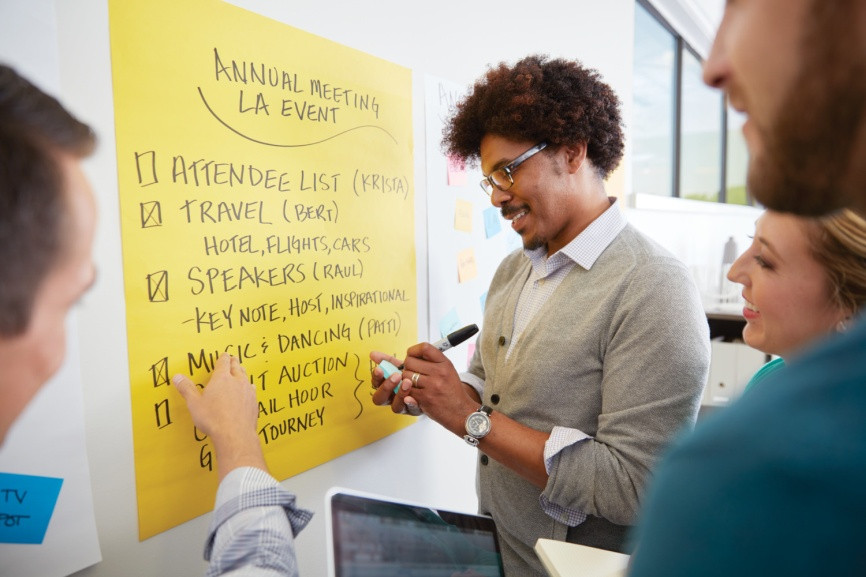 ANNUAL MEETING
LA EVENT
ATTENDEE LIST (KRISTA)
TRAVEL (BERT)
HOTEL, FLIGHTS, CARS
SPEAKERS (RAUL)
-KEYNOTE, HOST, INSPIRATIONAL
MUSIC & DANCING (PATTI)
AUCTION
HOUR
TOURNEY
TV